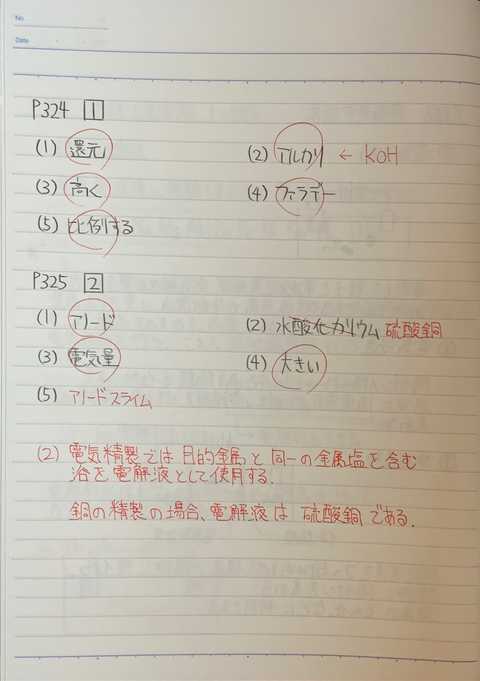 No.
Date
P324 1
(1) 還元 (2) アルカリ ← KOH
(3) 高く (4) ファラデー
(5) 比例する
P325 2
(1) アノード (2) 水酸化カリウム 硫酸銅
(3) 電気量 (4) 大きい
(5) アノードスライム
(2) 電気精製では目的金属と同一の金属塩を含む
浴を電解液として使用する.
銅の精製の場合、電解液は 硫酸銅 である.